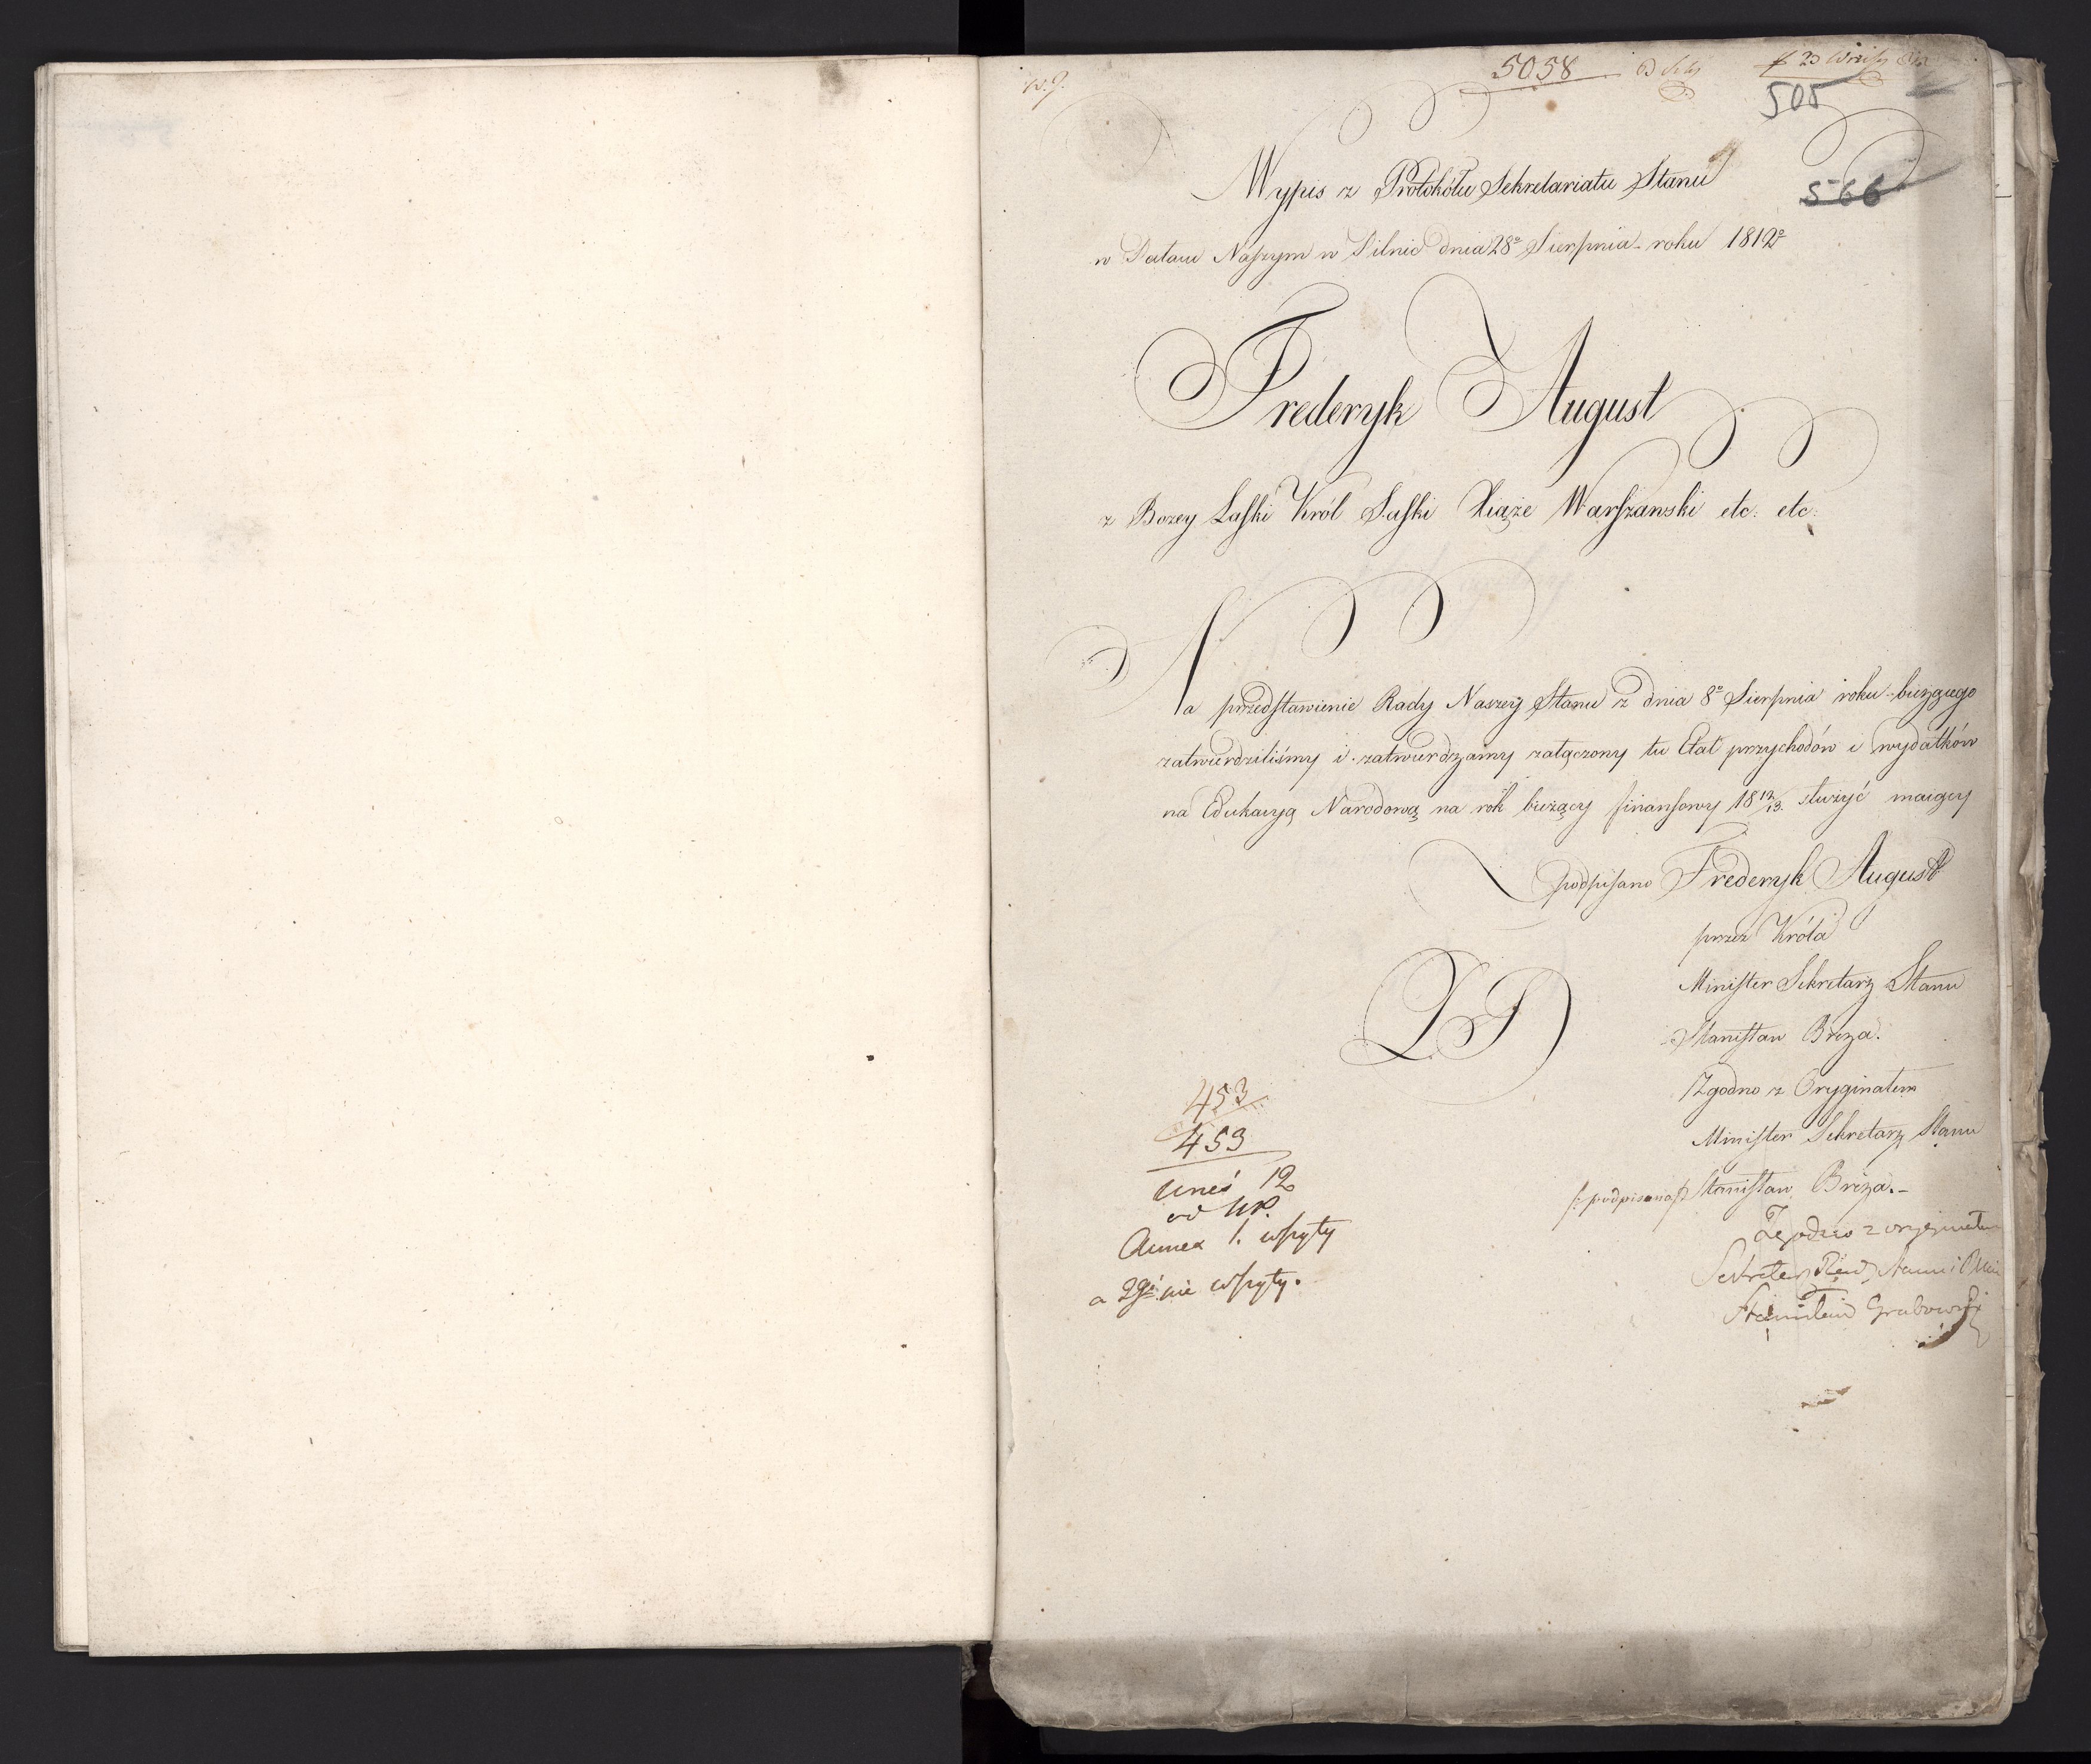 5058
505
566
Wypis z Protokółu Sekretariatu Stanu
w Pałacu Naszym w Pilnic dnia 28º Sierpnia roku 1812º
Fryderyk August
z Bozey Łaski Król Saski Xiąże Warszawski etc: etc:
Na przedstawienie Rady Naszey Stanu z dnia 8º Sierpnia roku bieżącego
zatwierdziliśmy i zatwierdzamy załączony tu Etat przychodów i wydatków
na Edukacyą Narodową na rok bieżący finansowy 18 12/13 służyć maiący
podpisano Fryderyk August
przez Króla
Minister Sekretarz Stanu
Stanisław Breza.
Zgodno z Oryginałem
Minister Sekretarz Stanu
/: podpisano :/ Stanisław Breza.-
Zgodno z oryginałem
Sekretarz Rady Stanu i
Stanisław Grabowski
453
453
12
Annex 1. wszyty
a 2gi nie wszyty.